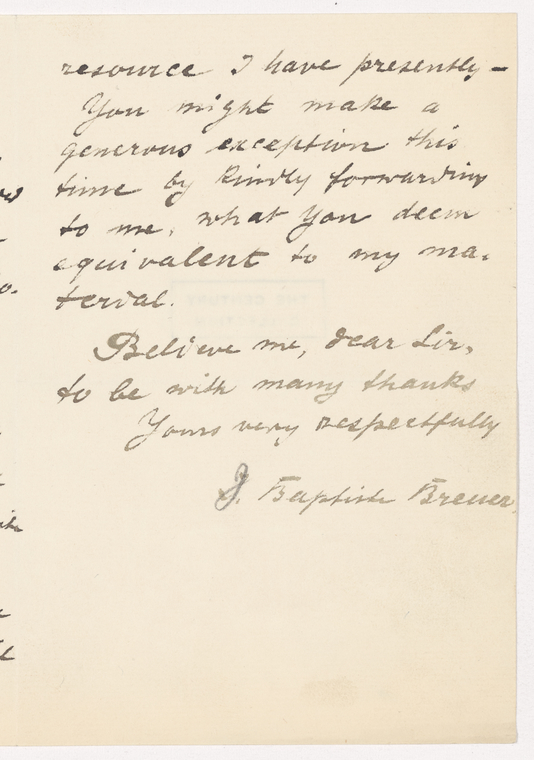 resource I have presently –
You might make a
generous exception this
time by kindly forwarding
to me, what you deem
equivalent to my ma-
terial.
Believe me, dear Sir,
to be with many thanks
Yours very respectfully
J. Baptiste Breuer